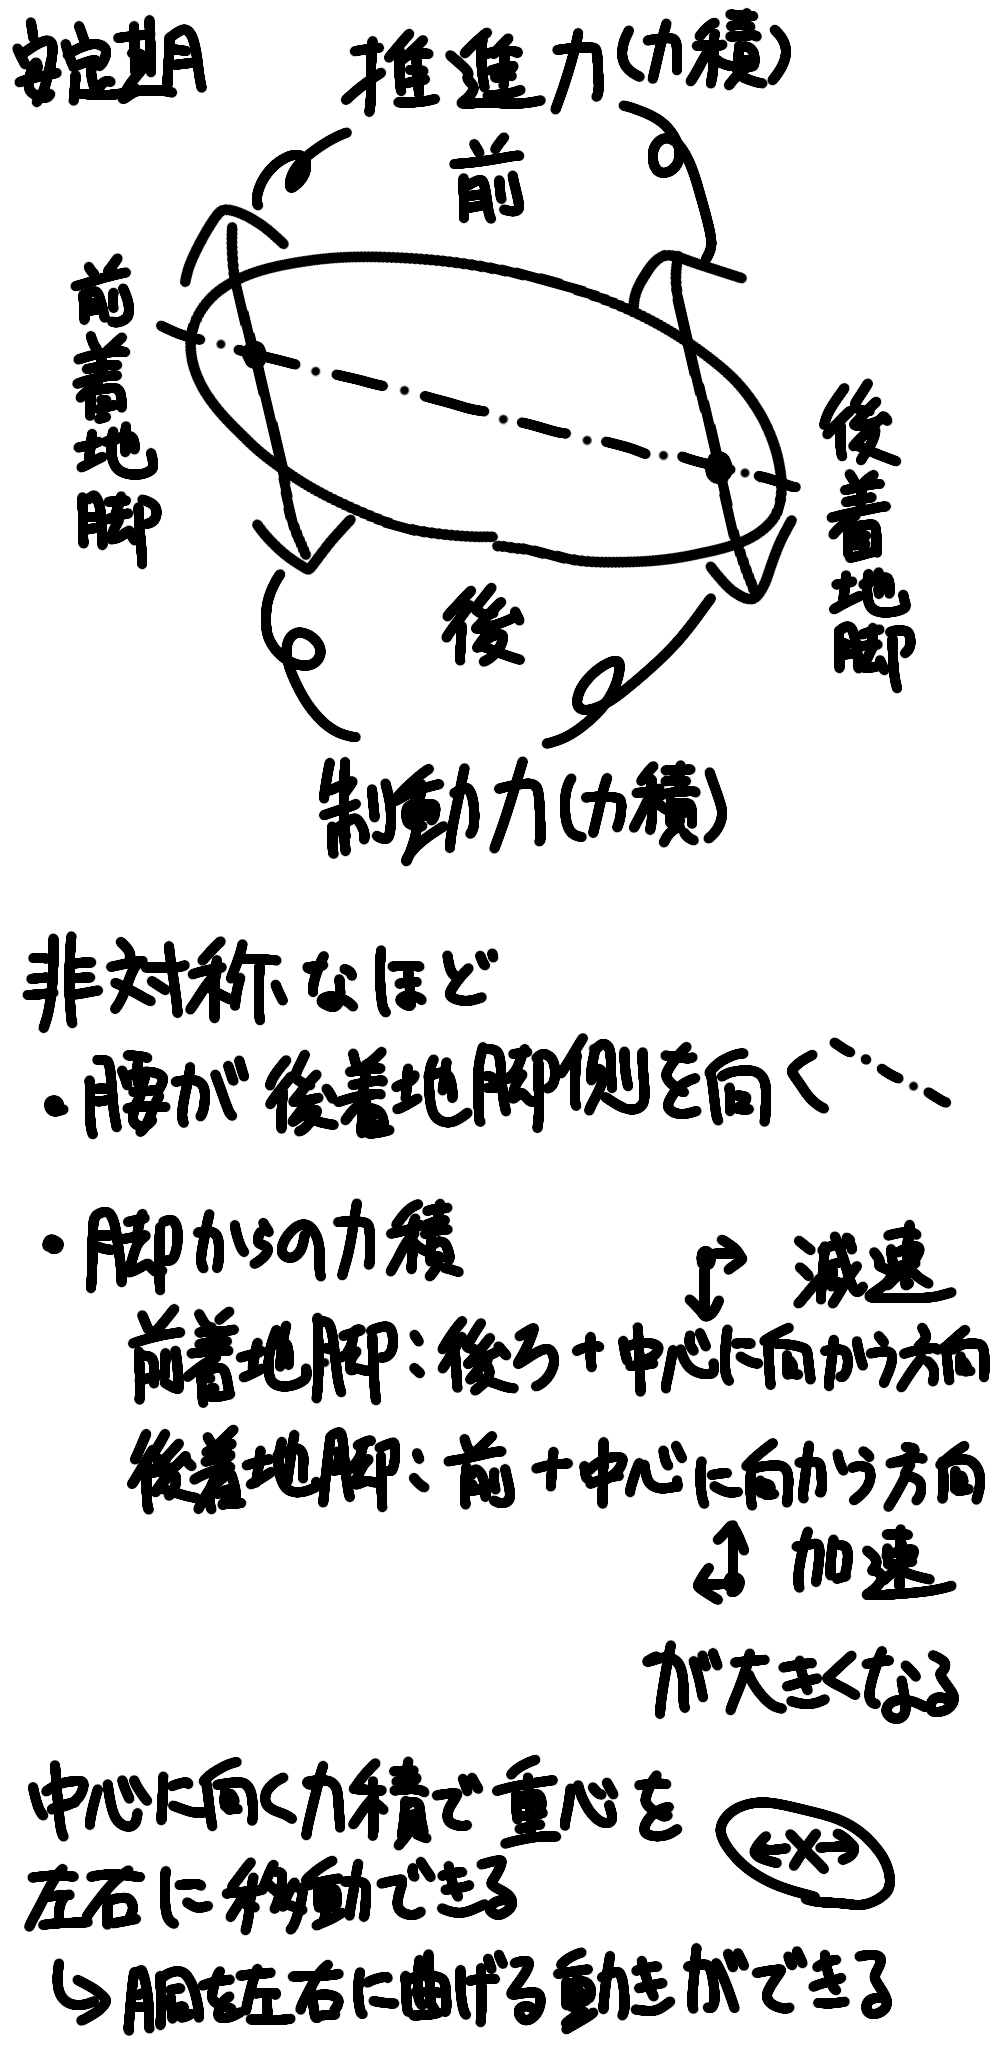 安定期
推進力(力積)
前
前着地脚
後着地脚
後
制動力(力積)
非対称なほど
・腰が後着地脚側を向く
・脚からの力積
減速
前着地脚:後ろ+中心に向かう方向
後着地脚:前+中心に向かう方向
加速
が大きくなる
中心に向く力積で重心を
左右に移動できる
↳胴を左右に曲げる動きができる